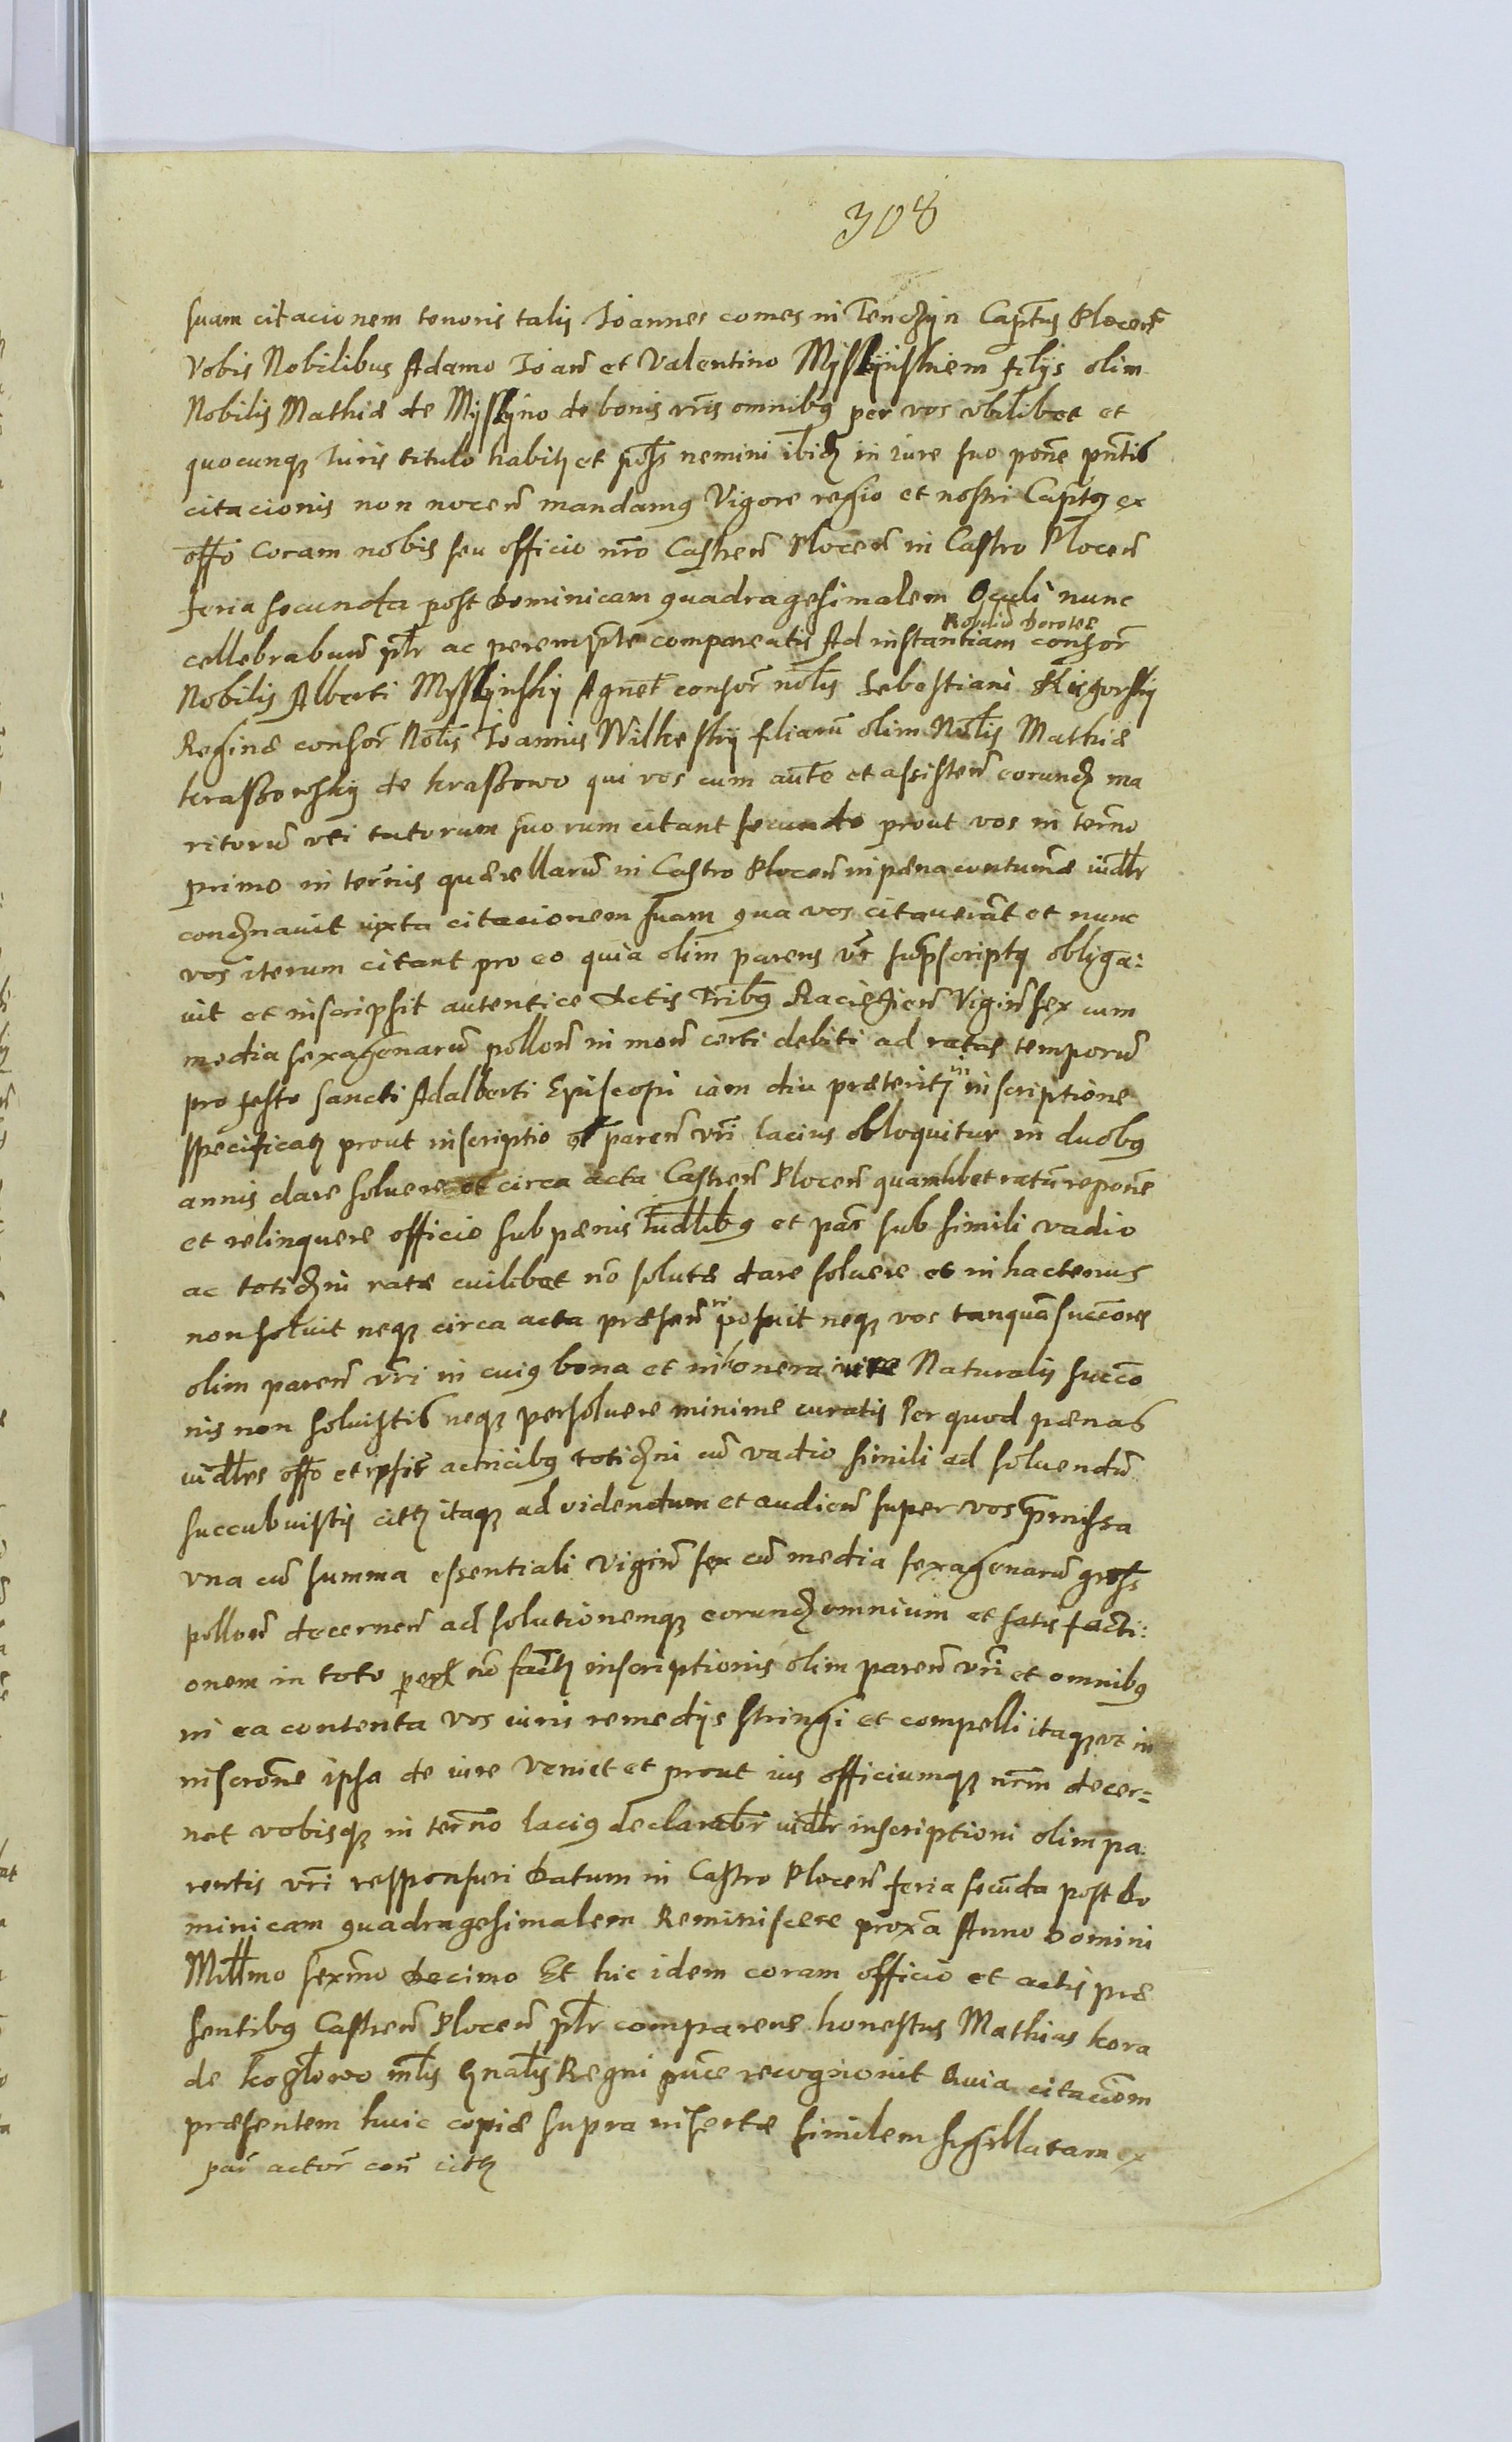 308
suam citacionem tenoris talis Ioannes comes in Tenczyn Captus Plocen
Vobis Nobilibus Adamo Ioan et Valentino Myslyinskiem filys olim
Nobilis Mathiæ de Myslyno de bonis vris omnibq per vos vbilibet et
quocunqz Iuris titulo habitz et poss nemini ibidz in iure suo pone pntis
citacionis non nocen mandamq Vigore regio et nostri Captq ex
offo Coram nobis seu officio nro Castren Plocen in Castro Plocen
feria secunda post Dominicam quadragesimalem Oculi nunc
Nobiliu Dorotee
cellebrabun plr ac perempte compareatis Ad instantiam consor
Nobilis Alberti Myslyinsky Agnet consor nolis Sebestiani
Reginæ consor Nolis Ioannis Wilkesky filiaru olim Nolis Mathiæ
krassowsky de krassowo qui vos cum aute et assisten eorundz ma
ritoru vti tutorum suorum citant secundo prout vos in terno
primo in ternis quærellaru in Castro Plocen in pæna contumæ
condznauit iuxta citacionem suam qua vos citauerat et nunc
vos iterum citant pro eo quia olim parens vr suprscriptq obliga:
uit et inscripsit autentice Actis Tribq Viginsex cum
media sexagenaru pollon in mon certi debiti ad ratas temporu
pro festo Sancti Adalberti Episcopi iam diu præteritz in inscriptione
specificatz prout inscriptio paren vri lacius obloquitur in duobq
annis dare soluere et circa acta Castren Plocen quamlibet ratu repone
et relinquere officio sub pænis Iudlibq et par sub simili vadio
ac totidzni ratæ cuilibet no solutæ dare soluere et in hactenus
non soluit neqz circa acta præsen posuit neqz vos tanqua succores
olim paren vri in cuiq bona et in onera iure Naturalis succo
nis non soluistis neqz persoluere minime curatis Per quod pænas
iudles offo et ipsis actricibq totidzni cu vadio simili ad soluendu
succubuistis cittz itaqz ad videndum et audien super vos præmissa
vna cu summa essentiali Vigin sex cu media sexagenaru gross
pollon decernen ad solutionemqz eorundz omnium et satisfacti:
onem in toto no factz inscriptionis olim paren vri et omnibq
in ea contenta vos iuris remedys stringi et compelli itaqz vt in
inscrone ipsa de iure veniet et prout ius officiumqz nrm decer=
net vobisqz in terno laciq declarabr iudlr inscriptioni olim pa
rentis vri responsuri Datum in Castro Plocen feria secunda post Do
minicam quadragesimalem Reminiscere proxa Anno Domini
Millmo sexmo decimo Et hic idem coram officio et actis præ
sentibq Castren Plocen plr comparens honestus Mathias kora
de kozlowo mlis gnalis Regni puce recognouit Quia citacom
præsentem huic copiæ supra insertæ similem sigillatam ex
par actor con citz